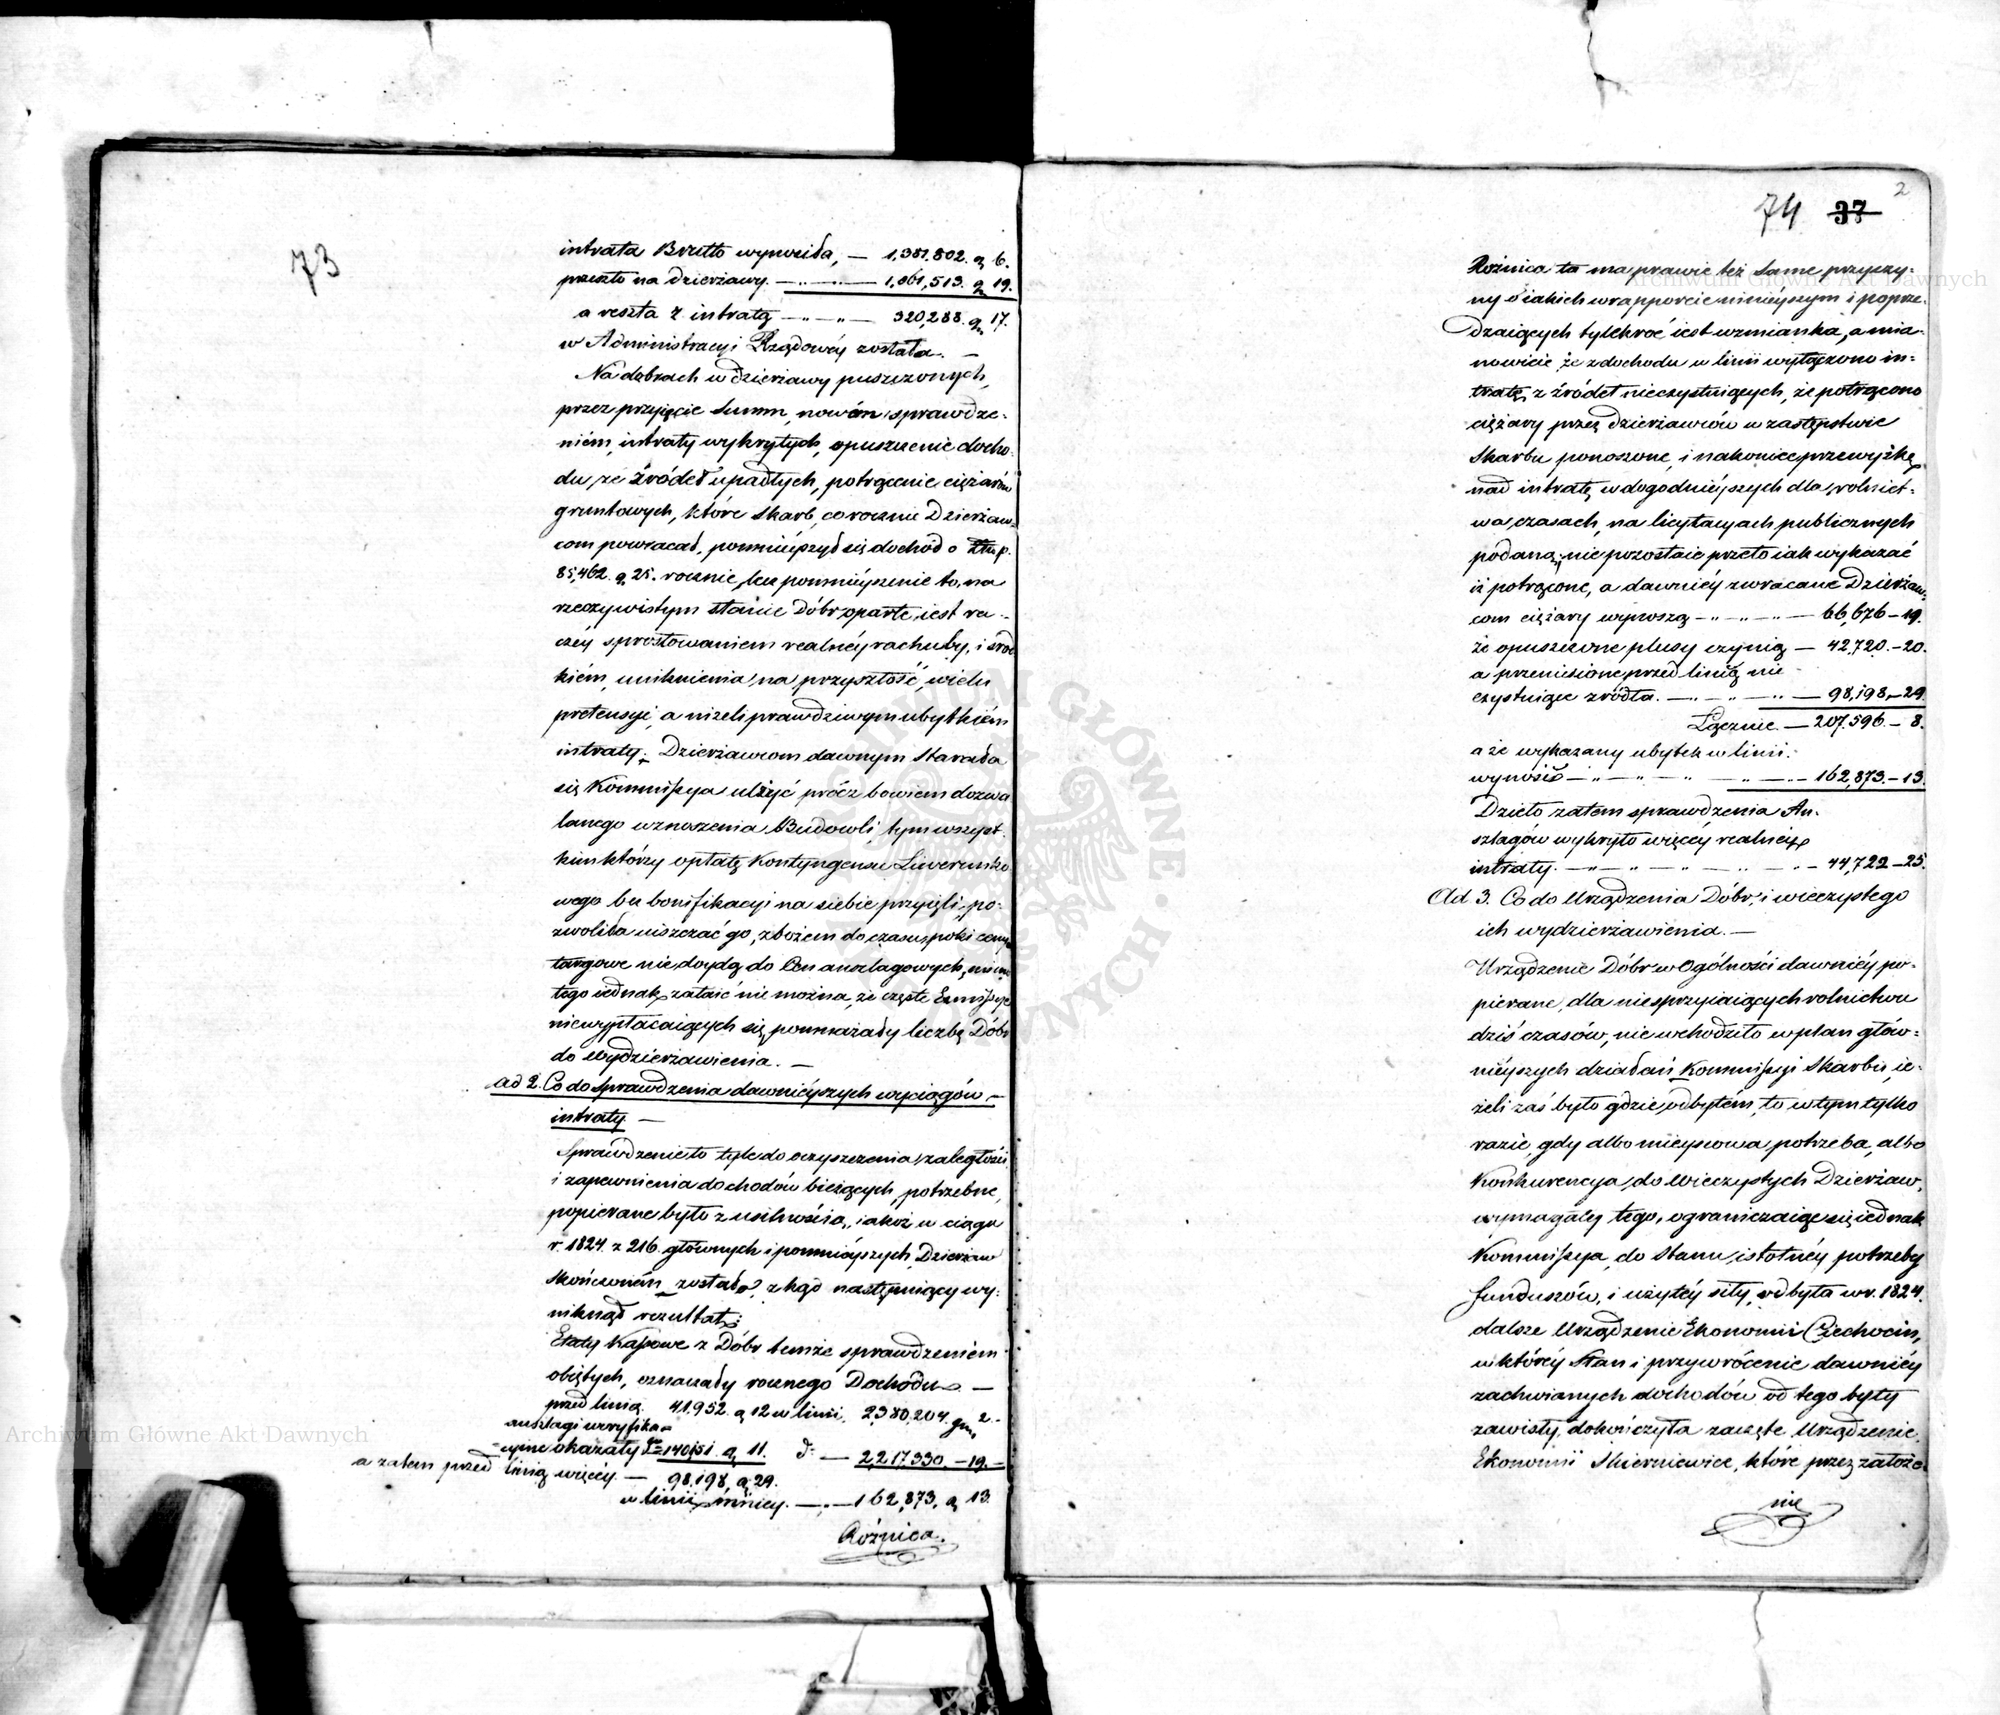 73
intrata Brutto wynosiła, — 1,381,802. g 6.
przeszło na dzierżawy. — „ — „ — 1,061,513. g 19.
a reszta z intratą — „ — „ — 320,288. g 17.
w Administracyi Rządowéy została. —
Na dobrach w dzierżawy puszczonych,
przez przyięcie Summ, nowém sprawdze-
niém, intraty wykrytych, opuszczenie docho-
du ze źródeł upadłych, potrącenie ciężarów
gruntowych, które Skarb corocznie Dzierżaw-
com powracał, pomnieyszył się dochód o Złtp.
85,462. g 25. rocznie, lecz pomnieyszenie to, na
rzeczywistym stanie Dóbr oparte, iest ra-
czéy sprostowaniem realnéy rachuby, i środ
kiém, uniknienia na przyszłość, wielu
pretensyi, a niżeli prawdziwym ubytkiém
intraty. Dzierżawcom dawnym Starała
się Kommissya ulżyć prócz bowiem dozwa
lanego wznoszenia Budowli, tym wszyst-
kim którzy opłatę Kontyngensu Liwerunko
wego bez bonifikacyi na siebie przyięli, po-
zwoliła uiszczać go, zbożem do czasu, poki ceny
targowe nie doydą do Cen anszlagowych, mimo
tego iednak, zataić nie można, że częste Exmissye
niewypłacaiących się, pomnażały liczbę Dóbr
do wydzierżawienia. —
ad 2. Co do Sprawdzenia dawnieyszych wyciągów —
intraty —
Sprawdzenie to tyle do oczyszczenia zaległości
i zapewnienia dochodów bieżących, potrzebne,
popierane było z usilnością, iakoż w ciągu
r. 1824. z 216. głównych i pomnieyszych, Dzierżaw
Skończoném zostało, zkąd następuiący wy-
niknął rezultat:
Etaty Kassowe z Dóbr temże sprawdzeniém
obiętych, oznaczały rocznego Dochodu —
przed linią. 41.952. g 12 w linii, 2,380,204. g 2.-
anszlagi weryfika-
cyine okazały 140,151. g 11. d: — 2,217,330. — 19. —
a zatem przed linią więcéy — 98,198, g 29.
w linii mniey. — „ — 162,873, g 13.
Różnica.
2
74 37
Różnica ta ma prawie też same przyczy-
ny o iakich w rapporcie ninieyszym i poprze-
dzaiących tylekroć iest wzmianka, a mia-
nowicie, że z dochodu w linii wyłączono in-
tratę, z źródeł nieexystuiących, że potrącono
ciężary przez dzierżawców w zastępstwie
Skarbu ponoszone, i nakoniec przewyżkę
nad intratę w dogodnieyszych dla rolnict-
wa, czasach, na licytacyach publicznych
podaną, nie pozostaie przeto iak wykazać
iż potrącone, a dawniéy zwracane Dzierżaw-
com ciężary wynoszą — „ — „ — „ — 66,676 — 19.
że opuszczone plusy czynią — 42,720. — 20.
a przeniesione przed linią nie
exystuiące źródła. — „ — „ — „ — 98,198, — 29
Łącznie — 207.596. — 8.
a że wykazany ubytek w linii
wynosił — „ — „ — „ — „ — 162,873. — 13.
Dzieło zatem sprawdzenia An-
szlagów wykryło więcéy realnéy
intraty. — „ — „ — „ — „ — 44,722 — 25.
Ad. 3. Co do Urządzenia Dóbr, i wieczystego
ich wydzierżawienia. —
Urządzenie Dóbr w Ogólności dawniéy po-
pierane, dla niesprzyiaiących rolnictwu
dziś czasów, nie wchodziło w plan głów-
nieyszych działań Kommissyi Skarbu, ie-
żeli zaś było gdzie odbytém, to w tym tylko
razie, gdy albo mieyscowa potrzeba, albo
Konkurencya, do wieczystych Dzierżaw,
wymagały tego, ograniczaiąc się iednak
Kommissya, do Stanu istotnéy potrzeby
funduszów, i użytéy siły, odbyła w r. 1824.
dalsze Urządzenie Ekonomii Ciechocin,
w któréy Stan i przywrócenie dawniéy
zachwianych dochodów od tego były
zawisły, dokończyła zaczęte Urządzenie
Ekonomii Skierniewice, które przez założe-
nie